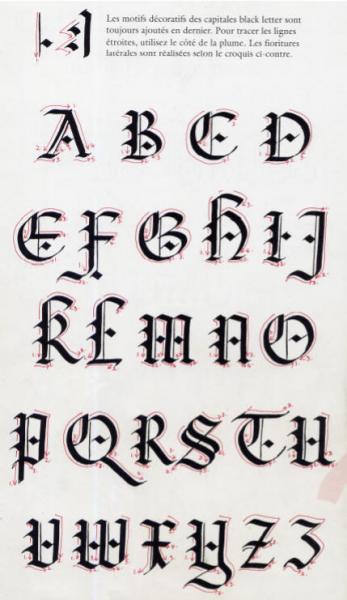 Les motifs décoratifs des capitales black letter sont
toujours ajoutés en dernier. Pour tracer les lignes
étroites, utilisez le côté de la plume. Les fioritures
latérales sont réalisées selon le croquis ci-contre.
A B C D
E F G H I J
K L M N O
P Q R S T U
V W X Y Z Z